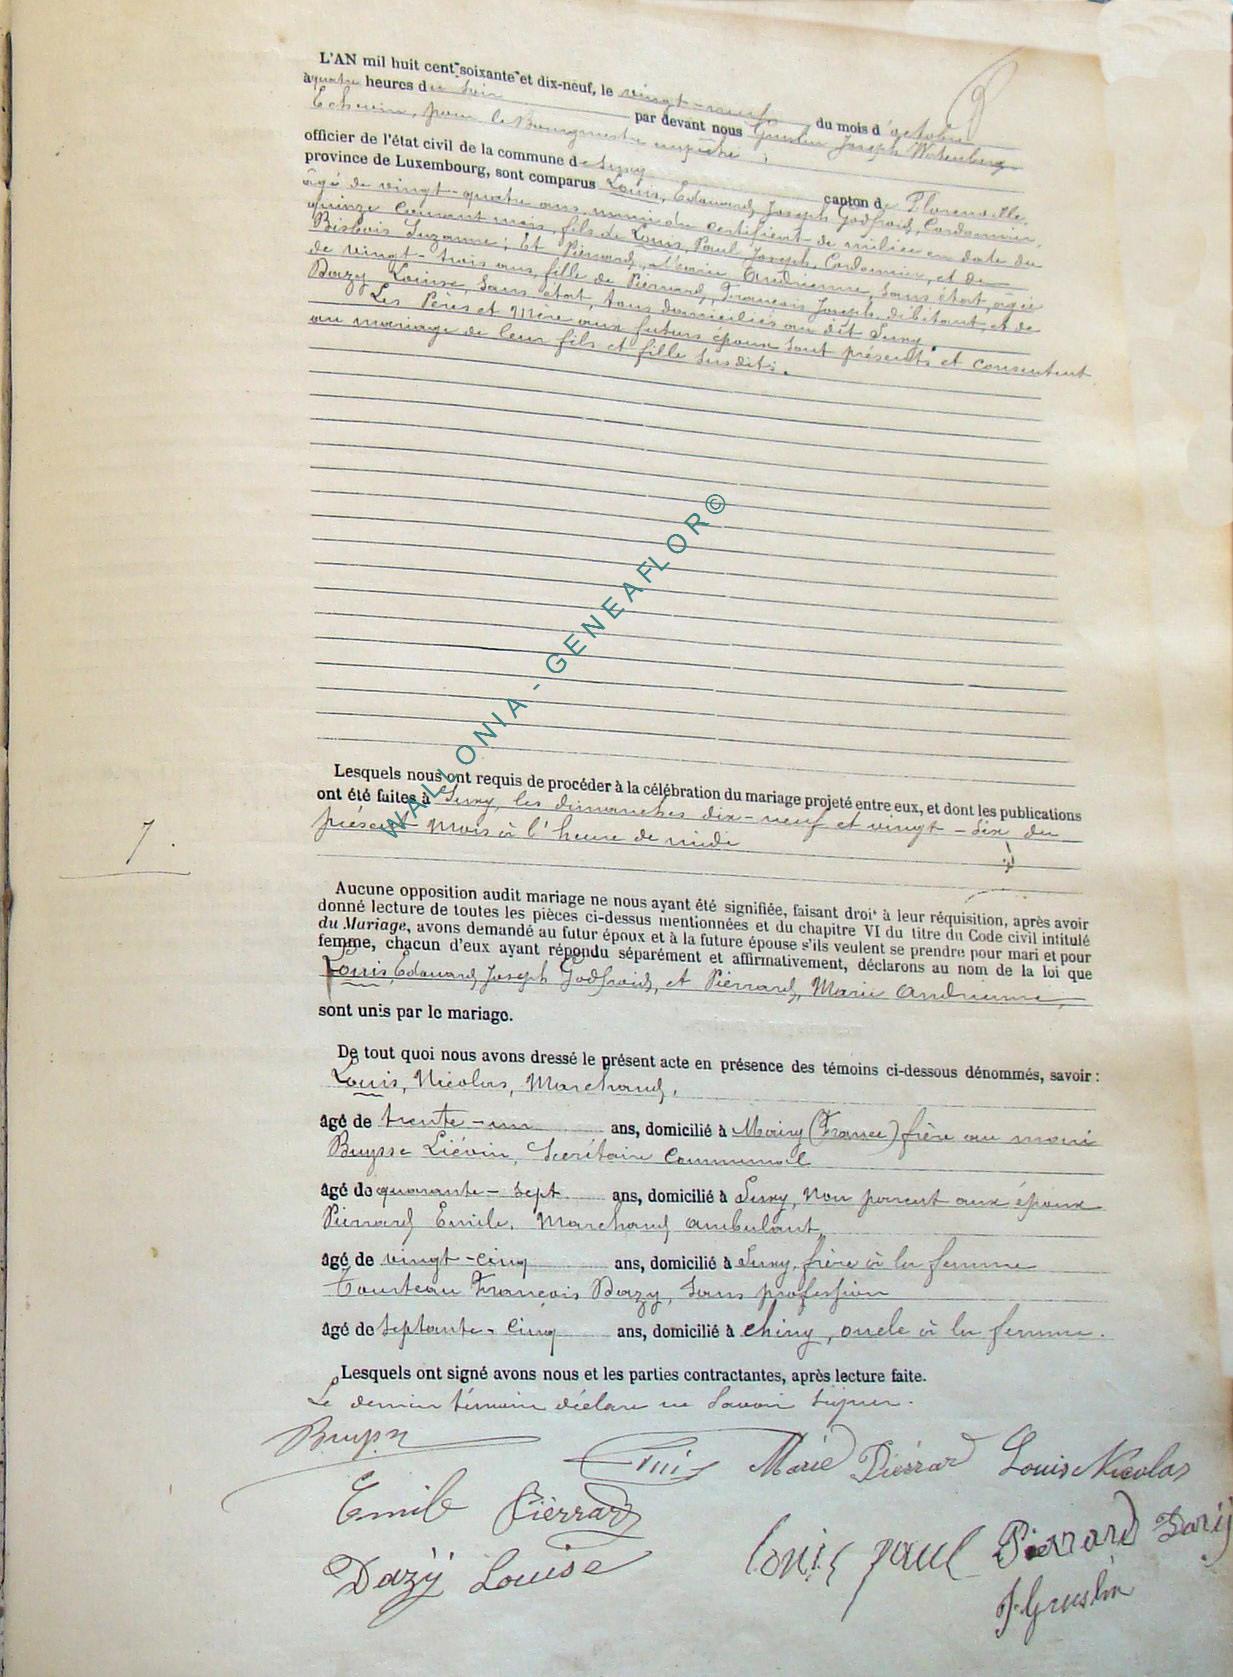 L'AN mil huit cent soixante et dix-neuf, le vingt-neuf du mois d'octobre
à quatre heures du soir par devant nous Gruslin Joseph
Echevin, pour le Bourgmestre empêché,
officier de l'état civil de la commune de Suxy canton de Florenville,
province de Luxembourg, sont comparus Louis, Edouard Joseph Godfroid, Cordonnier,
âgé de vingt-quatre ans, muni du certificat de milice en date du
quinze courant mois, fils de Louis, Paul Joseph, Cordonnier, et de
Suzanne; Et Pierrard, Marie Andrienne, sans état, âgée
de vingt-trois ans, fille de Pierrard, François Joseph, débitant, et de
Dazy Louise, sans état, tous domiciliés au dit Suxy.
Les Pères et Mère aux futurs époux sont présents et consentent
au mariage de leur fils et fille susdits.
Lesquels nous ont requis de procéder à la célébration du mariage projeté entre eux, et dont les publications
ont été faites à Suxy, les dimanches dix-neuf et vingt-six du
présent mois à l'heure de midi
7.
Aucune opposition audit mariage ne nous ayant été signifiée, faisant droit à leur réquisition, après avoir
donné lecture de toutes les pièces ci-dessus mentionnées et du chapitre VI du titre du Code civil intitulé
du Mariage, avons demandé au futur époux et à la future épouse s'ils veulent se prendre pour mari et pour
femme, chacun d'eux ayant répondu séparément et affirmativement, déclarons au nom de la loi que
Louis, Edouard Joseph Godfroid, et Pierrard, Marie Andrienne,
sont unis par le mariage.
De tout quoi nous avons dressé le présent acte en présence des témoins ci-dessous dénommés, savoir :
Louis, Nicolas, Marchand,
âgé de trente-un ans, domicilié à Mairy (France) frère au mari
Buysse Liévin, Secrétaire Communal
âgé de quarante-sept ans, domicilié à Suxy, non parent aux époux
Pierrard Emile, Marchand ambulant
âgé de vingt-cinq ans, domicilié à Suxy, frère à la femme
Tourteau François Dazy, sans profession
âgé de septante-cinq ans, domicilié à Chiny, oncle à la femme.
Lesquels ont signé avons nous et les parties contractantes, après lecture faite.
Le dernier témoin déclare ne savoir signer.
Buysse
Louis Marie Piérrard Louis Nicolas
Emile Pièrrard
Louis paul Pierrard
Dazÿ Louise
J. Gruslin
WALLONIA - GENEAFLOR©